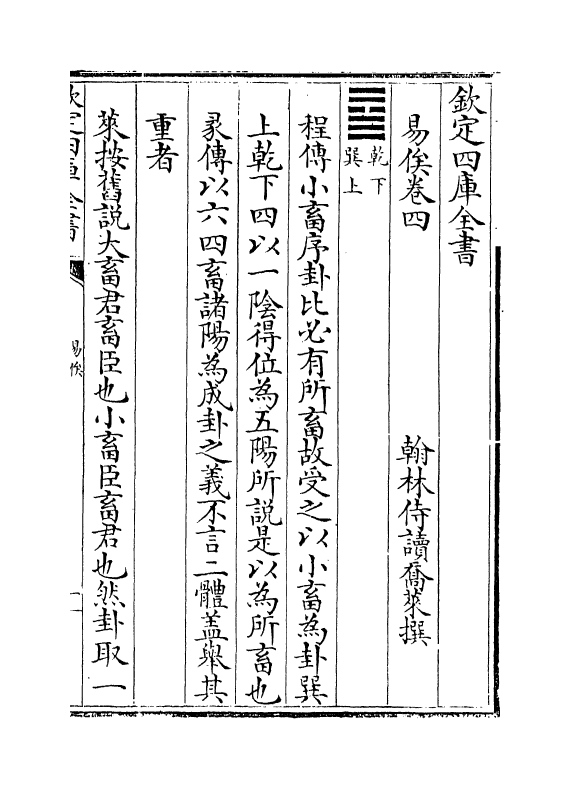 欽定四庫全書
易俟卷四
翰林侍讀喬萊撰
乾下
巽上
程傳小畜序卦比必有所畜故受之以小畜為卦巽
上乾下四以一陰得位為五陽所說是以為所畜也
彖傳以六四畜諸陽為成卦之義不言二體蓋舉其
重者
萊按舊說大畜君畜臣也小畜臣畜君也然卦取一
欽定四庫全書
易俟
一